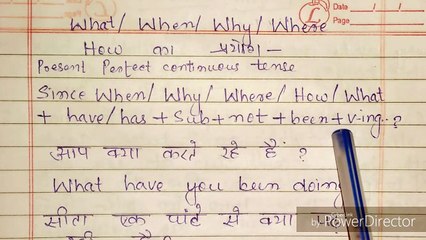 Date / /
Page
What/ When/ Why/ Where
How का प्रयोग -
Present Perfect continuous tense
Since When/ Why/ Where/ How/ What
+ have/has + Sub + not + been + v-ing..?
आप क्या करते रहे हैं ?
What have you been doing
सीता एक घांटे से क्या
Made with
PowerDirector